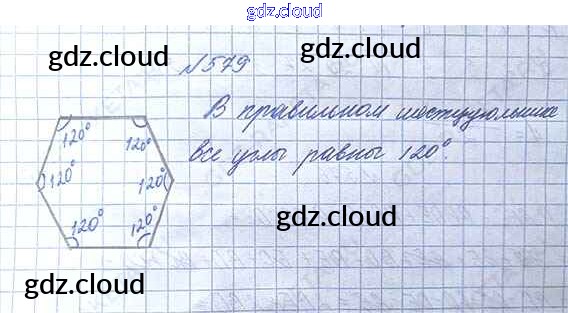 gdz.cloud
gdz.cloud
gdz.cloud
№579
В правильном шестиугольнике
все углы равны 120°.
120°
120°
120°
120°
120°
120°
gdz.cloud
gdz.cloud